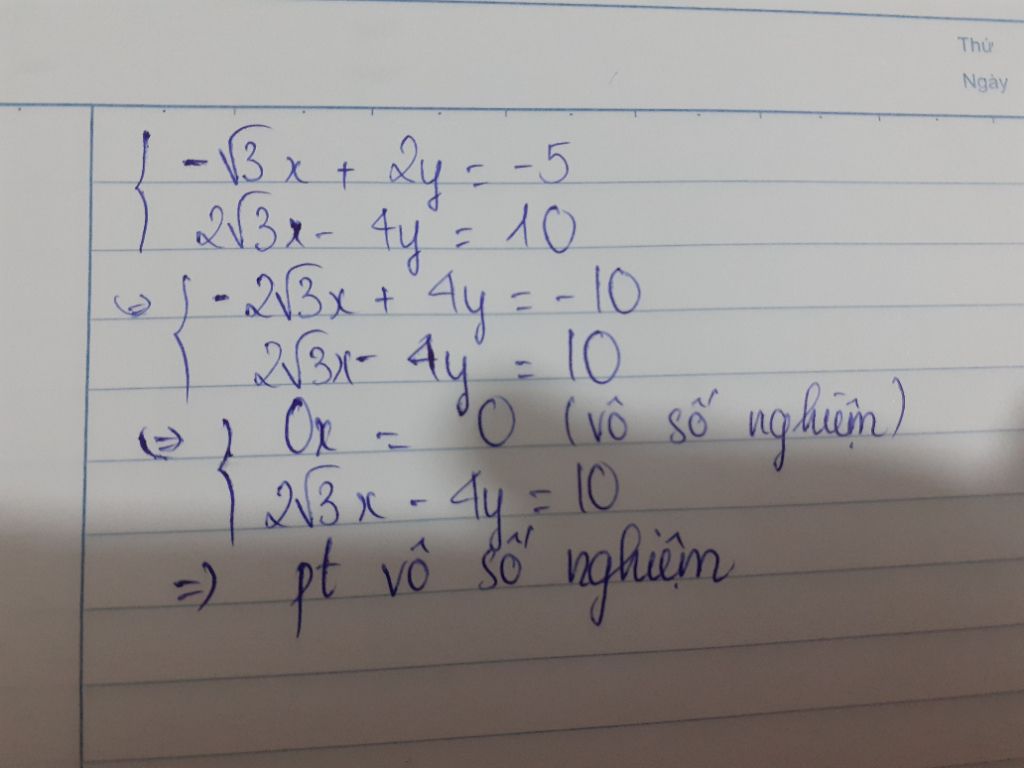 Thứ
Ngày
{ -√3x + 2y = -5
2√3x - 4y = 10
⇔ { -2√3x + 4y = -10
2√3x - 4y = 10
⇔ { 0x = 0 (vô số nghiệm)
2√3x - 4y = 10
⇒ pt vô số nghiệm